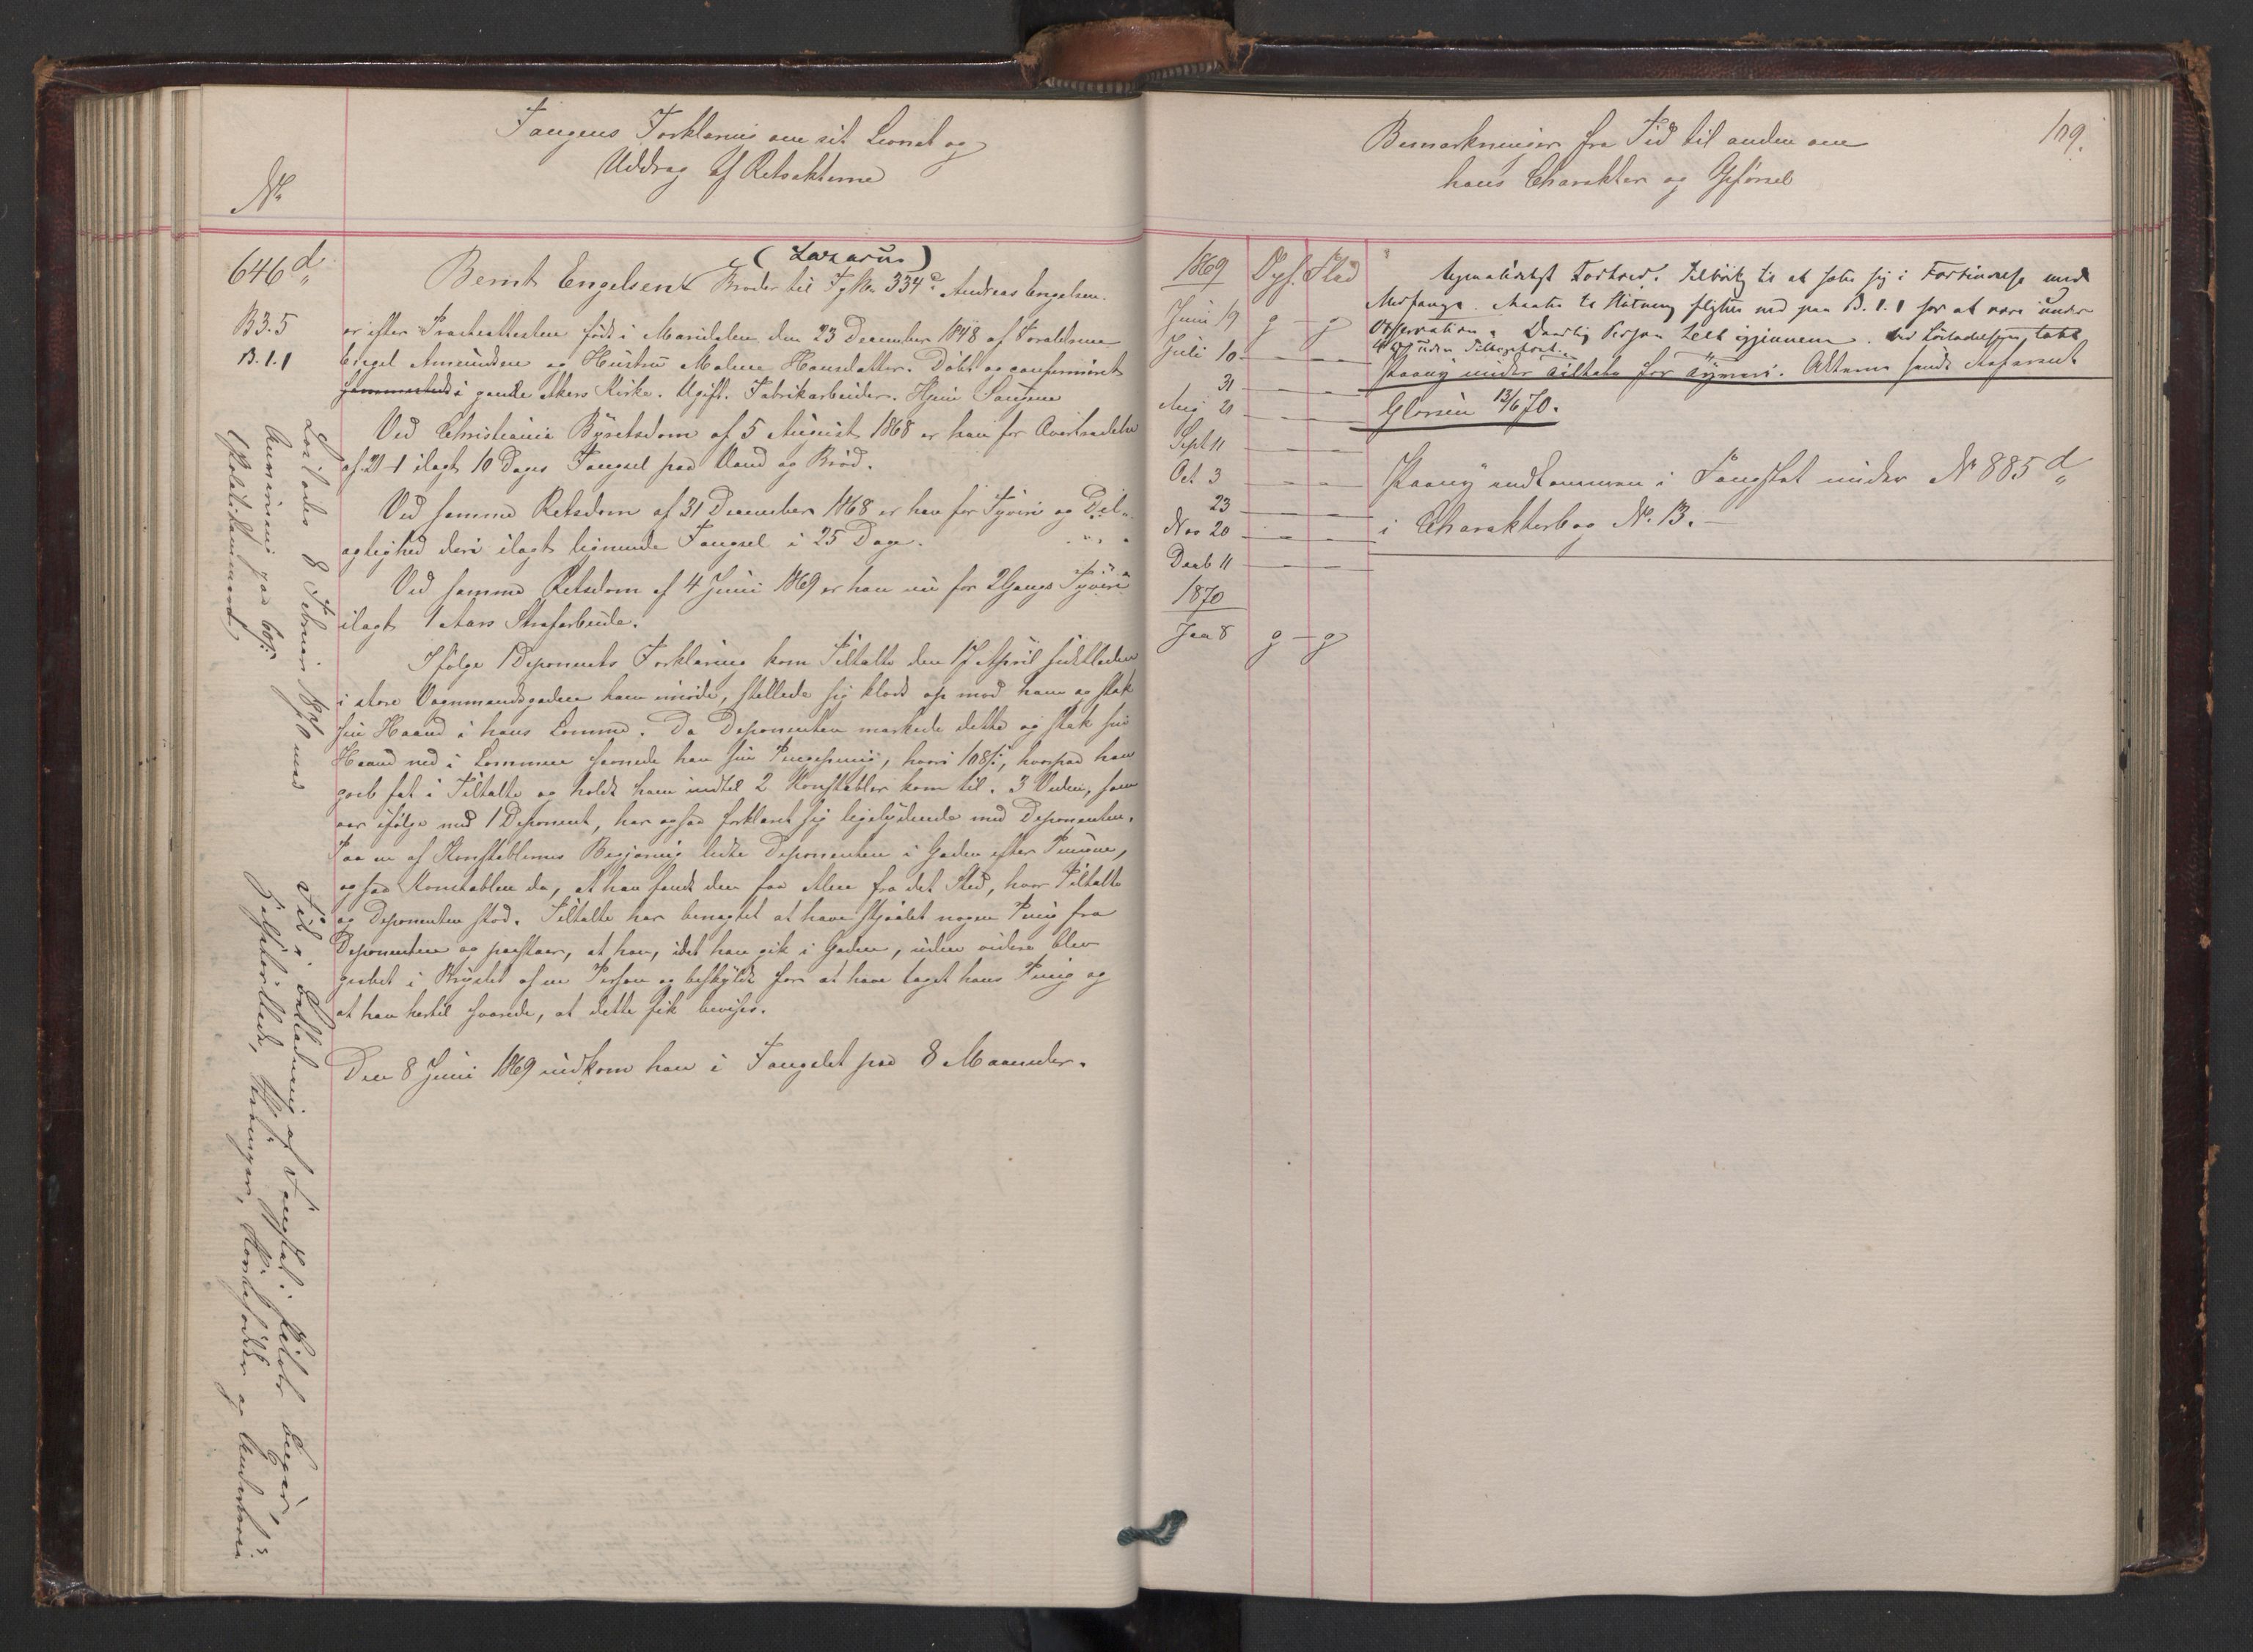 Fangens Forklaring om sit Levnet og
Uddrag af Retsakterne
No
646 d
B3.5
B.1.1
(Lazarus)
Bernt Engelsen Broder til Fg No 334 d Andreas Engelsen.
er efter Præsteattesten født i Maridalen den 23 December 1848 af Forældrene
Engel Amundsen og Hustru Malene Hansdatter. Døbt og confirmeret
sammesteds i gamle Akers Kirke. Ugift. Fabrikarbeider. Hjem Sagene
Ved Christiania Byretsdom af 5 August 1868 er han for Overtrædelse
af 21-1 ilagt 10 Dages Fængsel paa Vand og Brød.
Ved samme Retsdom af 31 December 1868 er han for Tyveri og Del-
agtighed deri ilagt lignende Fængsel i 25 Dage.
Ved samme Retsdom af 4 Juni 1869 er han nu for 2 Gangs Tyveri
ilagt 1 Aars Strafarbeide.
Ifølge 1 Deponents Forklaring kom Tiltalte den 17 April sidstleden
i store Vognmandsgaden ham imøde, stillede sig klods op mod ham og stak
sin Haand i hans Lomme. Da Deponenten mærkede dette og stak sin
Haand ned i Lommen savnede han sin Pengepung, hvori 108 s, hvorpaa han
greb fat i Tiltalte og holdt ham indtil 2 Konstabler kom til. 3 Vidne, som
var ifølge med 1 Deponent, har ogsaa forklaret sig ligelydende med Deponenten.
Paa en af Konstablernes Begjæring ledte Deponenten i Gaden efter Pungen,
og saa Konstablen da, at han fandt den faa Alen fra det Sted, hvor Tiltalte
og Deponenten stod. Tiltalte har benægtet at have stjaalet nogen Pung fra
Deponenten og paastaar, at han, idet han gik i Gaden, uden videre blev
grebet i Brystet af en Person og beskyldt for at have taget hans Pung og
at han hertil svarede, at dette fik bevises.
Den 8 Juni 1869 indkom han i Fængslet paa 8 Maaneder.
Løslades 8 Februar 1870 med
Anvisning paa 60 s
(Politikammeret)
Ved Løsladning af Fængslet:
Bemærkninger fra Tid til anden om
hans Charakter og Opførsel
109.
1869 Opf. Flid
Juni 19 g - g
Juli 10 - -
31 - -
Aug 21 - -
Sept 11 - -
Oct 3 - -
23 - -
Nov 20 - -
Decb 11 - -
1870
Jan 8 g - g
Tilbøielig til at sætte sig i Forbindelse med
Medfanger. Maatte flyttes ned paa B.1.1 for at være under
Observation. Daarlig Person helt igjennem. Ved Løsladelsen tabt
Paany under Tiltale for Tyveri. Akterne sendt
13/6 70.
Paany indkommen i Fængslet under No 885 d
i Charakterbog No. 13.